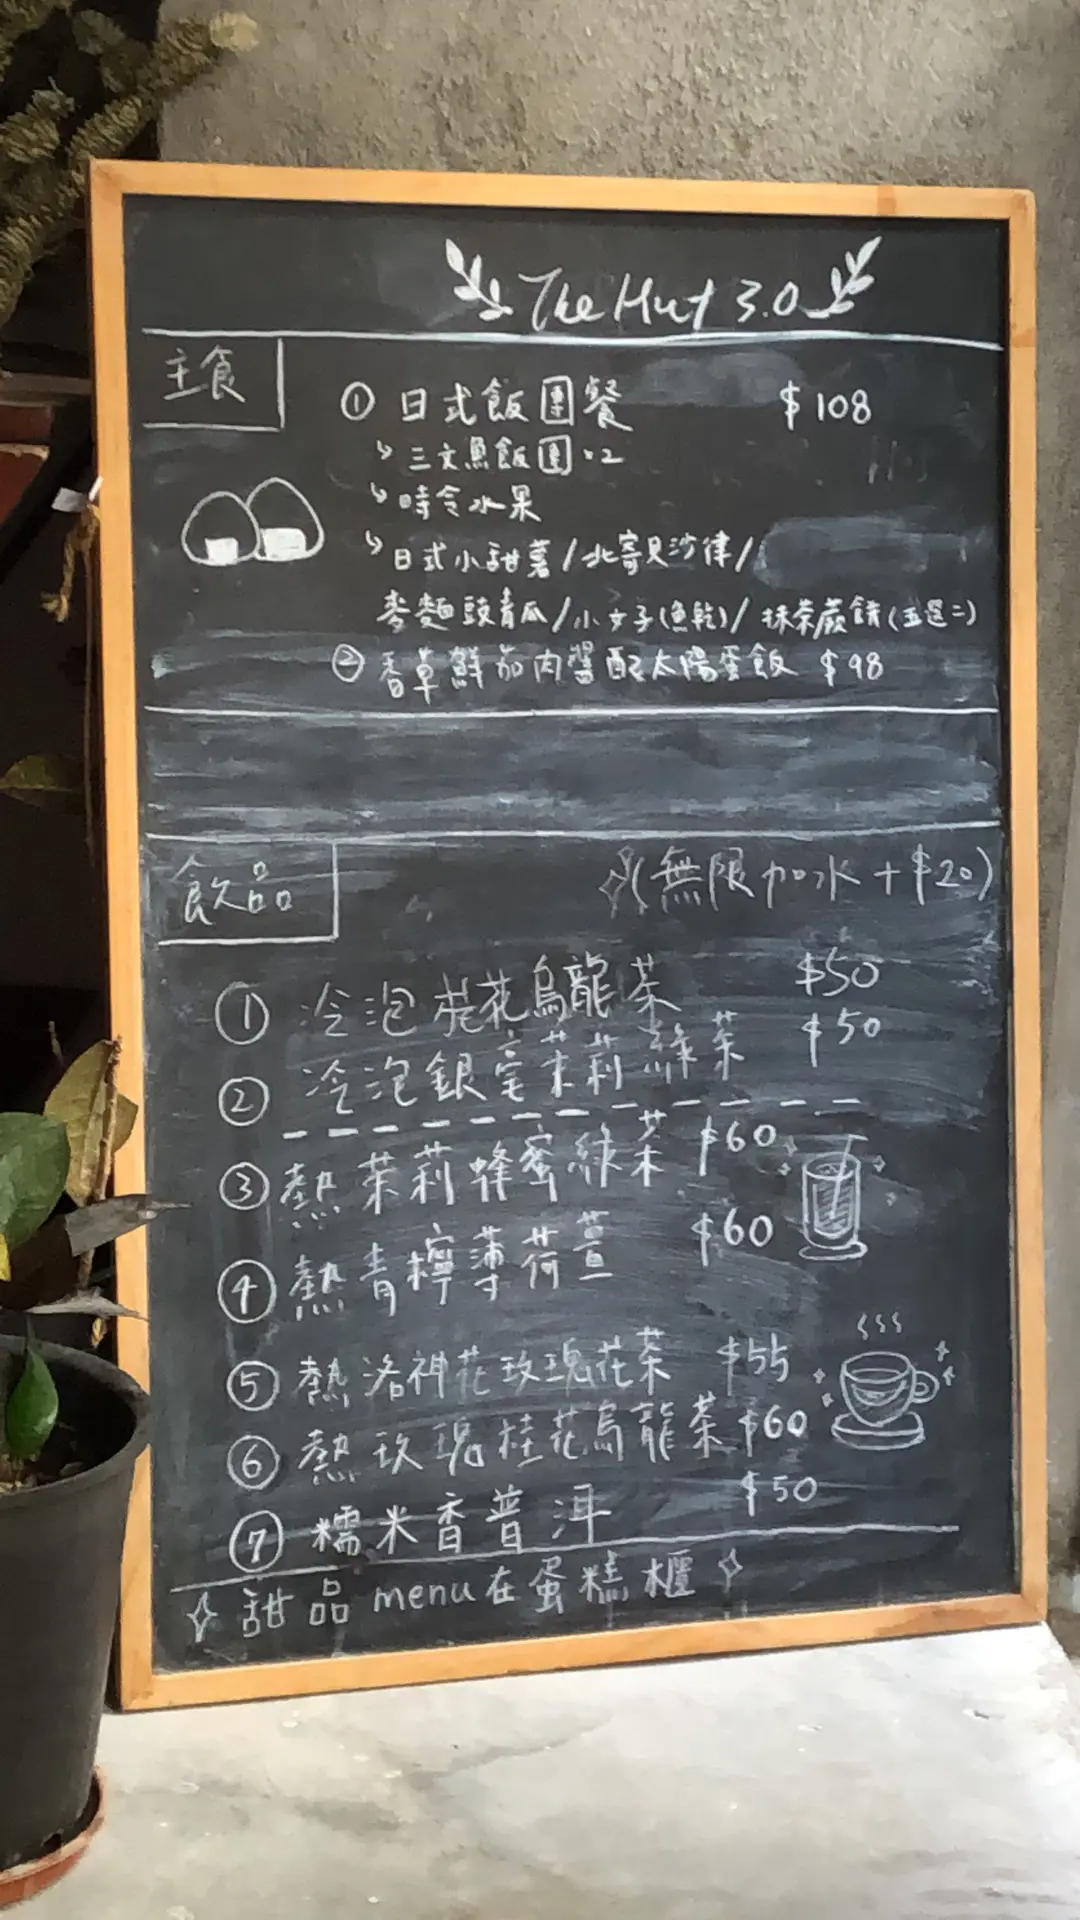 The Hut 3.0
主食
① 日式飯團餐 $108
↳ 三文魚飯團 x2
↳ 時令水果
↳ 日式小甜薯/北寄貝沙律/
麥麵豉青瓜/小女子(魚乾)/抹茶蕨餅(五選二)
② 香草鮮茄肉醬配太陽蛋飯 $98
飲品
(無限加水+$20)
① 冷泡桂花烏龍茶 $50
② 冷泡銀毫茉莉綠茶 $50
③ 熱茉莉蜂蜜綠茶 $60
④ 熱青檸薄荷薑 $60
⑤ 熱洛神花玫瑰花茶 $55
⑥ 熱玫瑰桂花烏龍茶 $60
⑦ 糯米香普洱 $50
甜品menu在蛋糕櫃